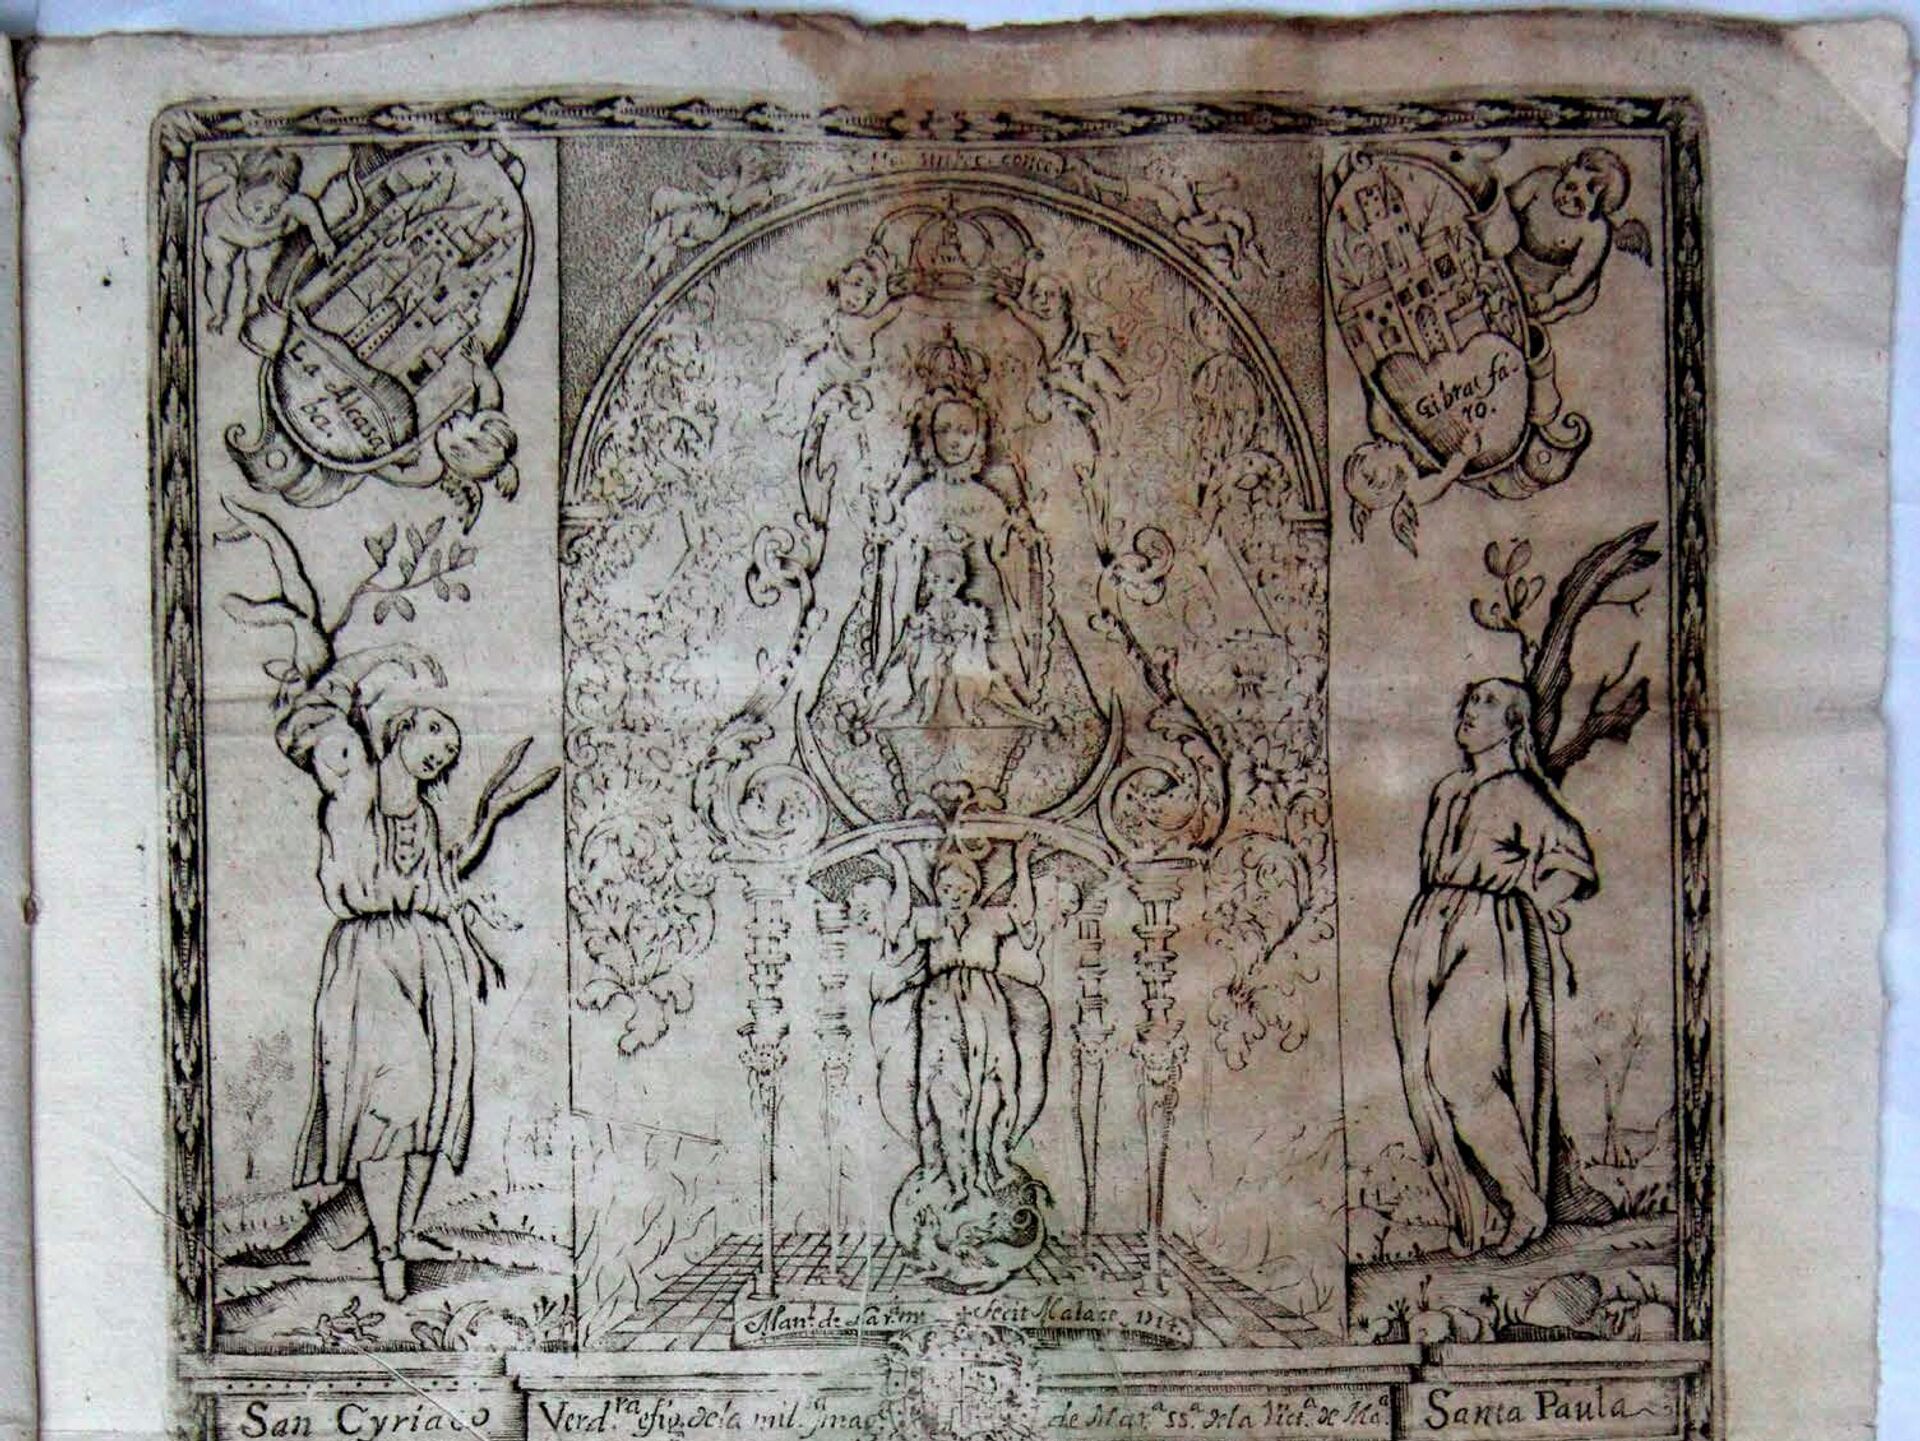 La Alcasa
ba.
Gibral fa-
ro.
fecit Malace 1714.
San Cyriaco
Verd.ra efig. de la mil.a Ymag.
de Mar.a ss.a de la Vict.a de Ma.a
Santa Paula